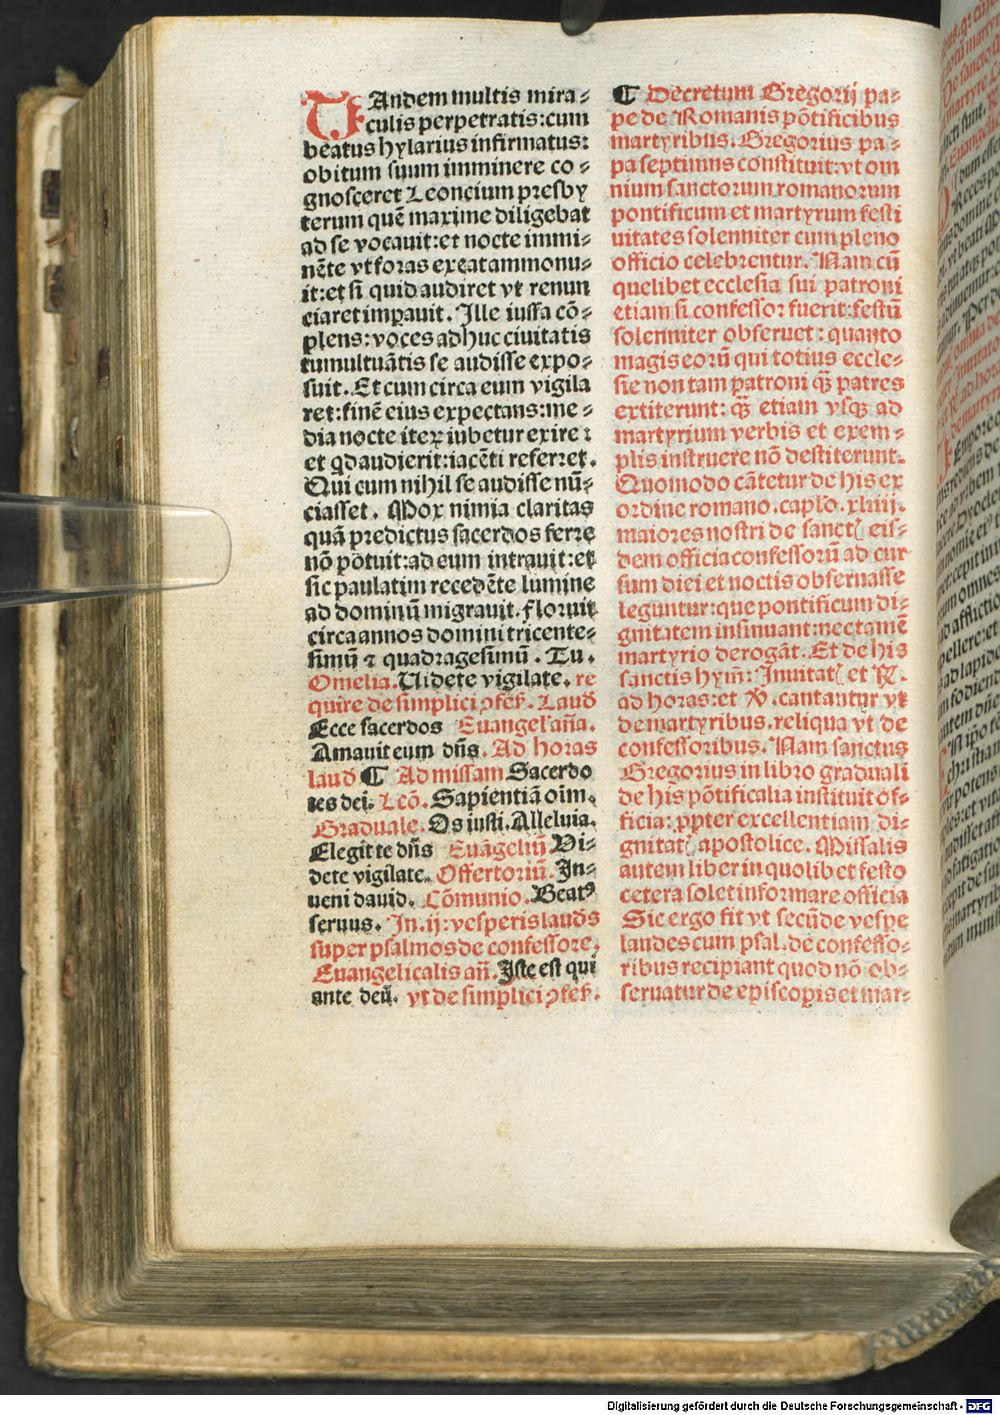 TAndem multis mira⸗
culis perpetratis:cum
beatus hylarius infirmatus:
obitum suum imminere co⸗
gnosceret Leoncium presby
terum quē maxime diligebat
ad se vocauit:et nocte immi⸗
nēte vt foras exeat ammonu⸗
it:et si quid audiret vt renun
ciaret imꝑauit. Ille iussa cō⸗
plens:voces adhuc ciuitatis
tumultuātis se audisse expo⸗
suit. Et cum circa eum vigila
ret:finē eius expectans:me⸗
dia nocte iteꝝ iubetur exire ⁊
et qd audierit:iacēti referret.
Qui cum nihil se audisse nū⸗
ciasset. Mox nimia claritas
quā predictus sacerdos ferre
nō potuit:ad eum intrauit:et
sic paulatim recedēte lumine
ad dominū migrauit. floruit
circa annos domini tricente⸗
simū ⁊ quadragesimū. Tu.
Omelia. Uidete vigilate. re
quire de simplici ꝯfeſ. Laud
Ecce sacerdos Euangel' aña.
Amauit eum dñs. Ad horas
laud ¶ Ad missam Sacerdo
tes dei. Lcō. Sapientiā oīm.
Graduale. Os iusti. Alleluia.
Elegit te dñs Euāgeliū Vi⸗
dete vigilate. Offertoriū. In⸗
ueni dauid. Cōmunio. Beatꝰ
seruus. In .ij: vesperis lauds
super psalmos de confessore.
Euangelicalis añ. Iste est qui
ante deū. vt de simplici ꝯfeſ.
¶ Decretum Gregorij pa⸗
pe de Romanis pōtificibus
martyribus. Gregorius pa⸗
pa septimus constituit:vt om
nium sanctorum romanorum
pontificum et martyrum festi
uitates solenniter cum pleno
officio celebrentur. Nam cū
quelibet ecclesia sui patroni
etiam si confessor fuerit:festū
solenniter obseruet: quanto
magis eorū qui totius eccle⸗
sie non tam patroni qꝫ patres
extiterunt: qꝫ etiam vsqꝫ ad
martyrium verbis et exem⸗
plis instruere nō destiterunt.
Quomodo cātetur de his ex
ordine romano. caplo. xliiij.
maiores nostri de sanctꝭ eis⸗
dem officia confessorū ad cur
sum diei et noctis obseruasse
leguntur:que pontificum di⸗
gnitatem insinuant:nec tamē
martyrio derogāt. Et de his
sanctis hym̄: Inuitatꝭ et ℟.
ad horas:et ℣. cantantur vt
de martyribus. reliqua vt de
confessoribus. Nam sanctus
Gregorius in libro graduali
de his pōtificalia instituit of⸗
ficia: ꝓpter excellentiam di⸗
gnitatꝭ apostolice. Missalis
autem liber in quolibet festo
cetera solet informare officia
Sic ergo fit vt secūde vespe
laudes cum psal. de confesso⸗
ribus recipiant quod nō ob⸗
seruatur de episcopis et mar⸗
Digitalisierung gefördert durch die Deutsche Forschungsgemeinschaft - DFG